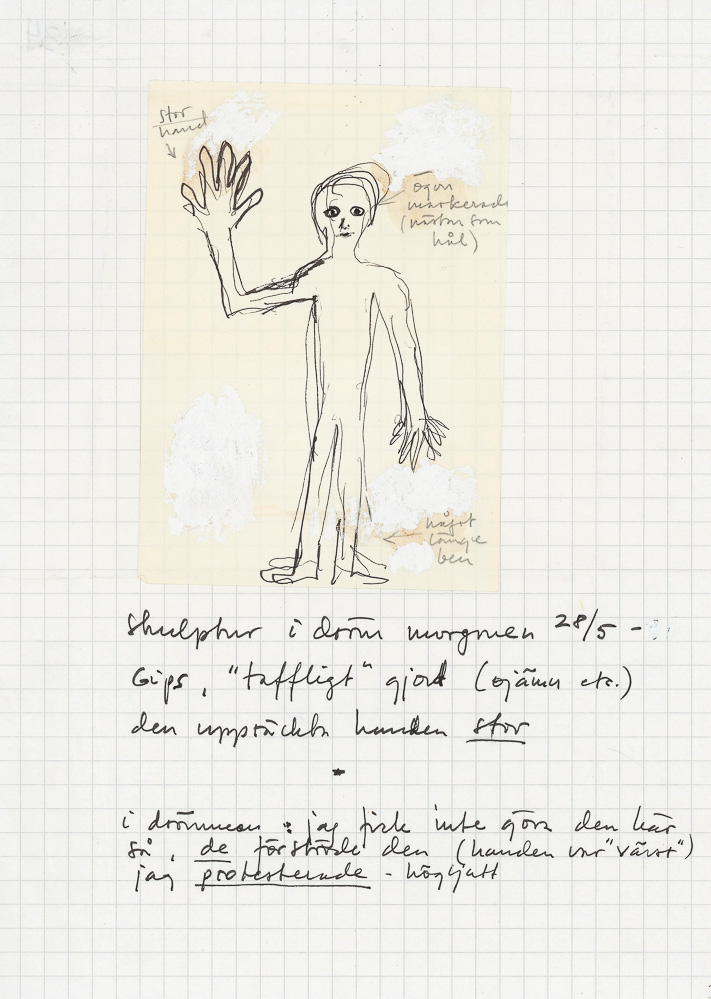 stor
hand
ögon
markerade
(nästan som
hål)
något
långa
ben
Skulptur i dröm morgonen 28/5 -
Gips, "taffligt" gjord (ojämn etc.)
den uppsträckta handen stor
i drömmen: jag fick inte göra den här
så, de förstörde den (handen var "värst")
jag protesterade - högljutt